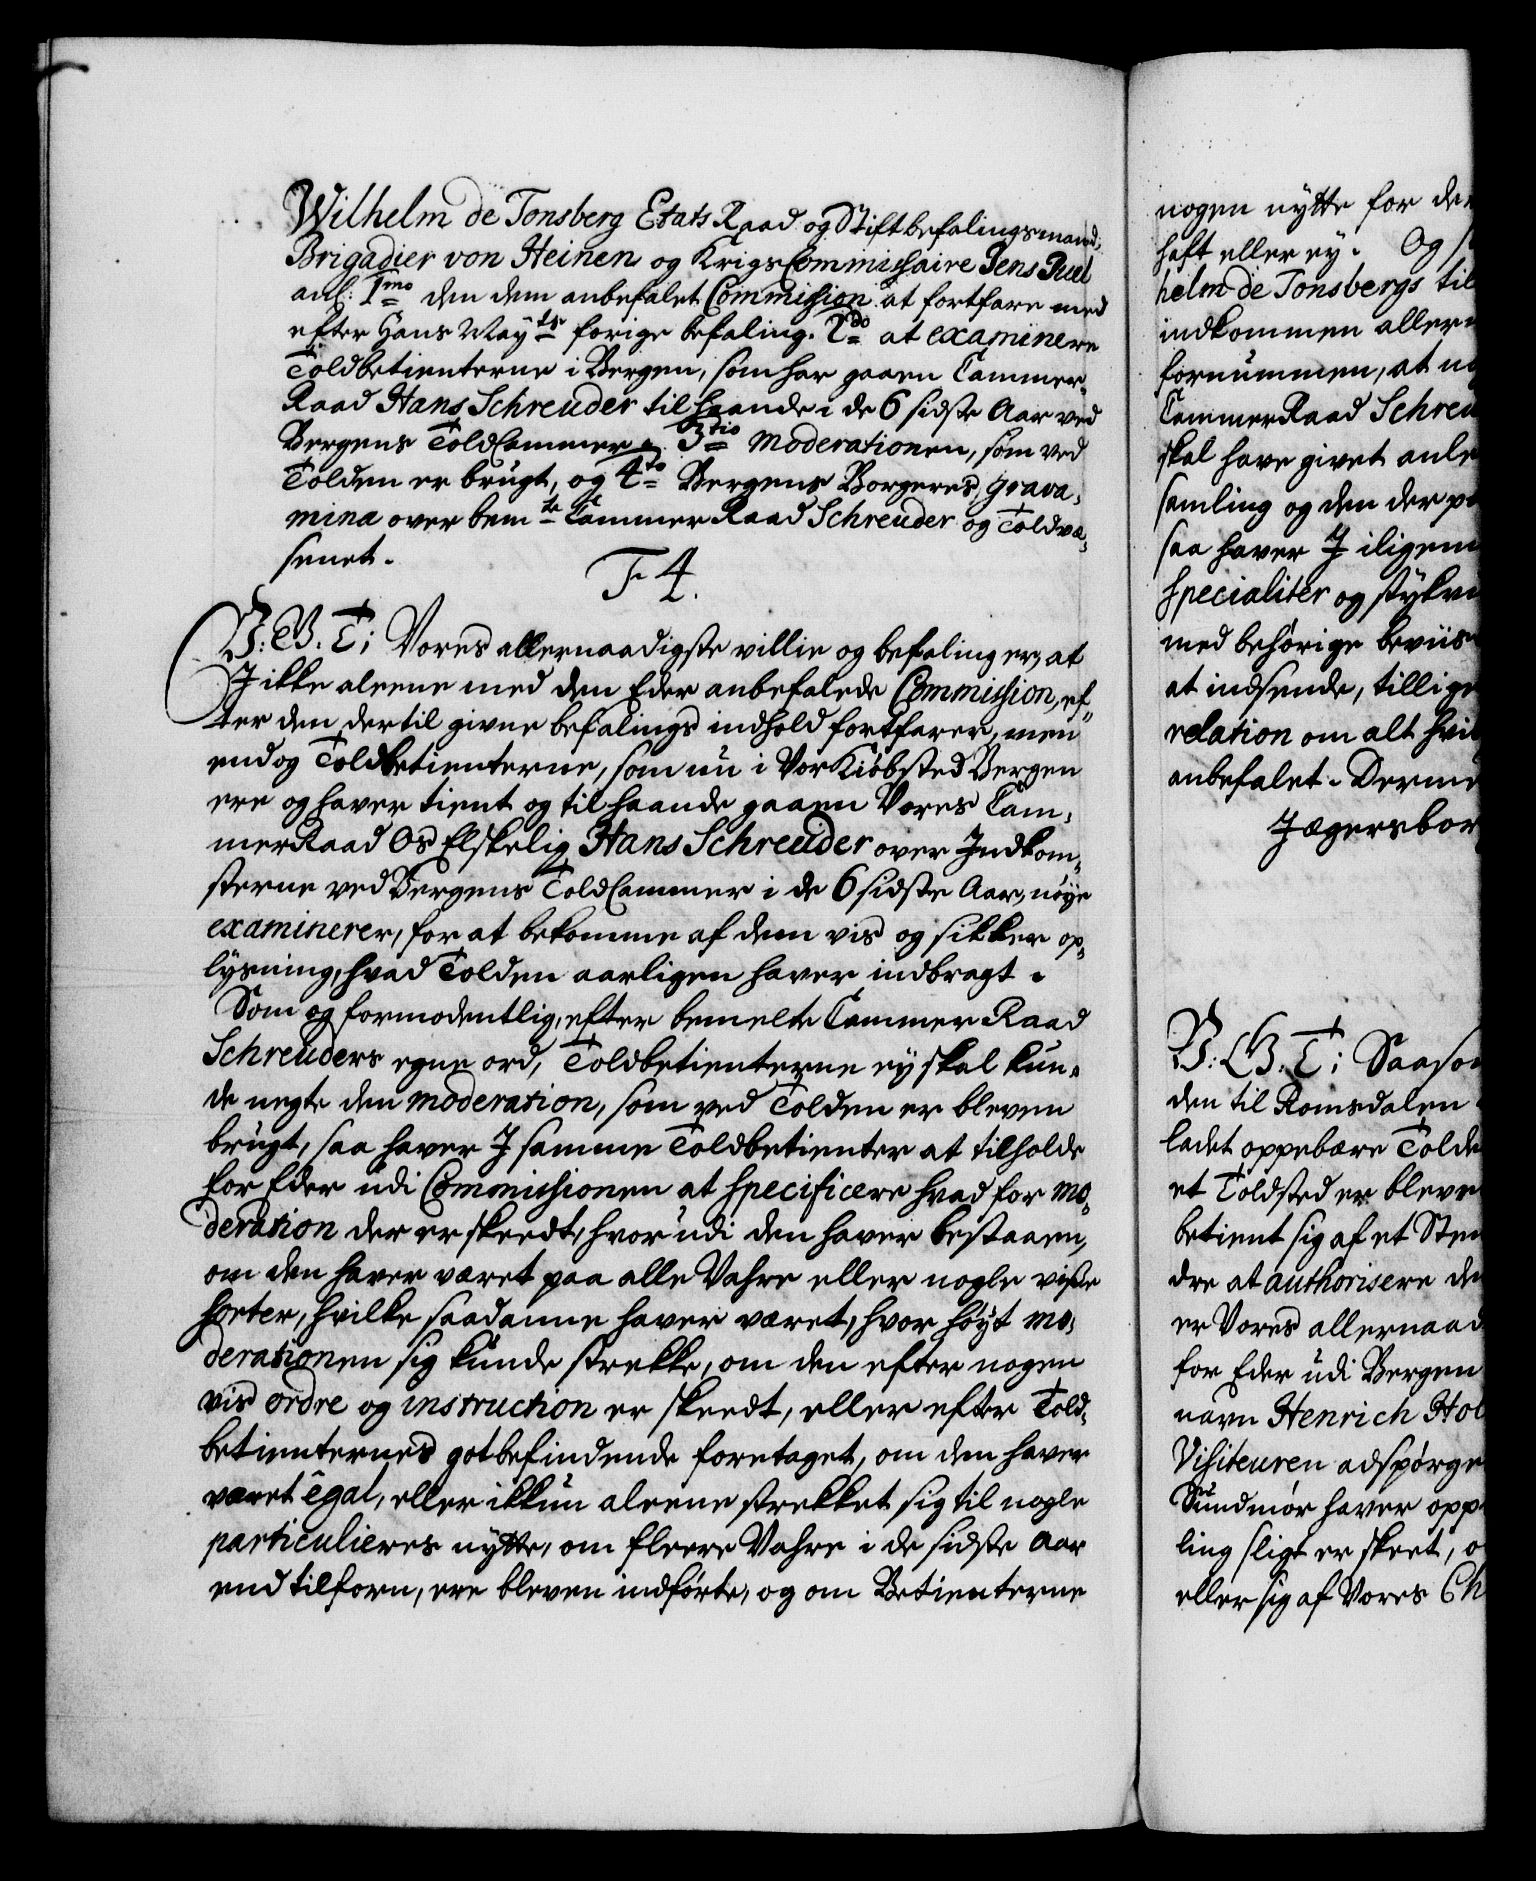 Wilhelm de Tonsberg Etats Raad og Stiftbefalingsmand,
Brigadier von Heinen og KrigsCommissaire Jens Juel
anl: 1mo den dem anbefalet Commission at fortfare med
efter Hans Mayts forige befaling. 2do at examinere
Toldbetienterne i Bergen, som har gaaen Cammer-
Raad Hans Schreuder til haande i de 6 sidste Aar ved
Bergens ToldCammer. 3tio Moderationen, som ved
Tolden er brugt, og 4to Bergens Borgeres grava-
mina over bemte Cammer Raad Schreuder og Toldvæ-
senet.
T. 4.
V: G. T: Vores allernaadigste villie og befaling er, at
J ikke aleene med den Eder anbefalede Commission, ef-
ter den dertil givne befalings indhold fortfarer, men
endog Toldbetienterne, som nu i Vor Kiøbsted Bergen
ere og haver tient og til haande gaaen Vores Cam-
merRaad Os Elskelig Hans Schreuder over Indkom-
sterne ved Bergens ToldCammer i de 6 sidste Aar, nøye
examinerer, for at bekomme af dem vis og sikker op-
lysning, hvad Tolden aarligen haver indbragt.
Som og formodentlig, efter bemelte Cammer Raad
Schreuders egne ord, Toldbetienterne ey skal kun-
de negte den moderation, som ved Tolden er bleven
brugt, saa haver J samme Toldbetienter at tilholde
for Eder udi Commissionen at specificere hvad for mo-
deration der er skeedt, hvorudi den haver bestaaen,
om den haver været paa alle Vahre eller nogle visse
sorter, hvilke saadanne haver været, hvor høyt mo-
derationen sig kunde strekke, om den efter nogen
vis ordre og instruction er skeedt, eller efter Told-
betienternes gotbefindende foretaget, om den haver
været êgal, eller ikkun aleene strekket sig til nogle
particulieres nytte, om fleere Vahre i de sidste Aar
end tilforn, ere bleven indførte, og om Betienterne
nogen nytte for de
haft eller ey. Og
helm de Tonsbergs til
indkommen aller
fornummen, at
CammerRaad Schreu
skal have givet anle
samling og den der
saa haver J iligem
specialiter og stykvi
med behørige beviis
at indsende, tillige
relation om alt hvi
anbefalet. Derme
Jægersbor
V: G. T: Saaso
den til Romsdalen
ladet oppebære Tolde
et Toldsted er bleve
betient sig af et Stem
dre at authorisere de
er Vores allernaad
for Eder udi Bergen
navn Henrich Hol
Visiteuren adspørge
Sundmør haver opp
ling sligt er skeet, o
eller sig af Vores Ch